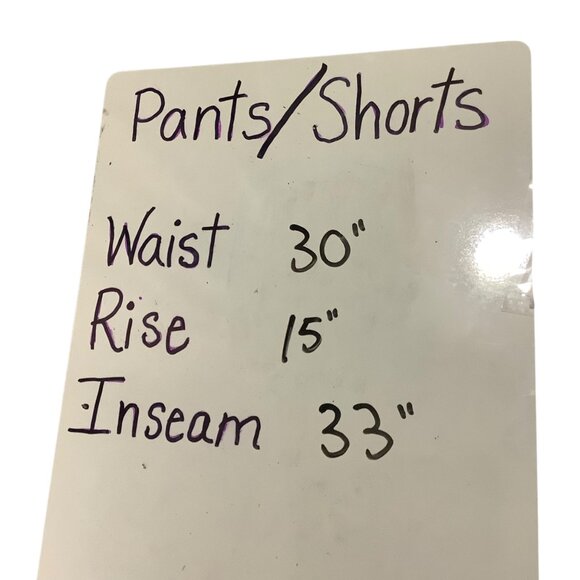 Pants/Shorts
Waist 30"
Rise 15"
Inseam 33"